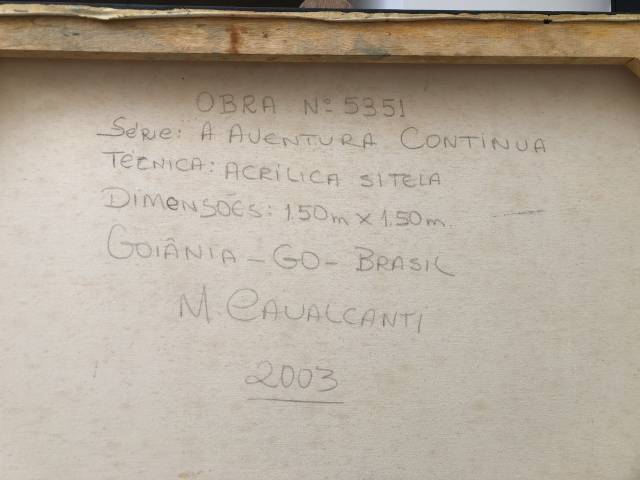 OBRA Nº 5351
Série: A AVENTURA CONTINUA
TÉCNICA: ACRÍLICA S/TELA
DIMENSÕES: 1.50m x 1.50m.
GOIÂNIA - GO - BRASIL
M. CAVALCANTI
2003